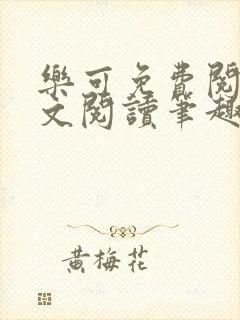 樂可免費閱
文閱讀筆趣
黃梅花